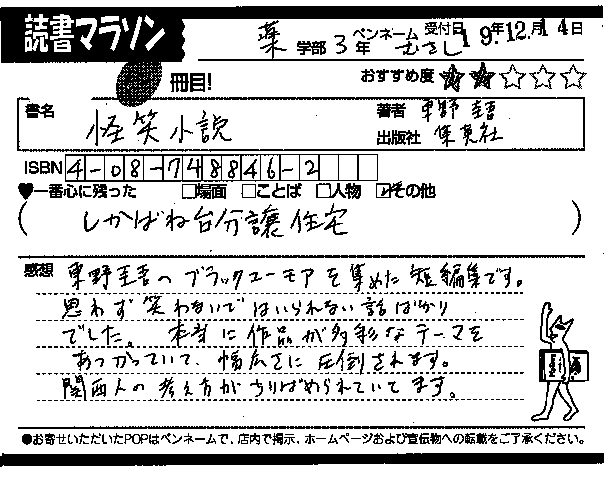 読書マラソン
薬 学部 3年 ペンネーム むさし 受付日 19年12月14日
冊目!
おすすめ度 ★★☆☆☆
書名 怪笑小説
著者 東野圭吾
出版社 集英社
ISBN 4-08-748846-2
♥一番心に残った □場面 □ことば □人物 ☑その他
(しかばね台分譲住宅)
感想 東野圭吾のブラックユーモアを集めた短編集です。
思わず笑わないではいられない話ばかり
でした。本当に作品が多彩なテーマを
あつかっていて、幅広さに圧倒されます。
関西人の考え方がちりばめられていてます。
●お寄せいただいたPOPはペンネームで、店内で掲示、ホームページおよび宣伝物への転載をご了承ください。